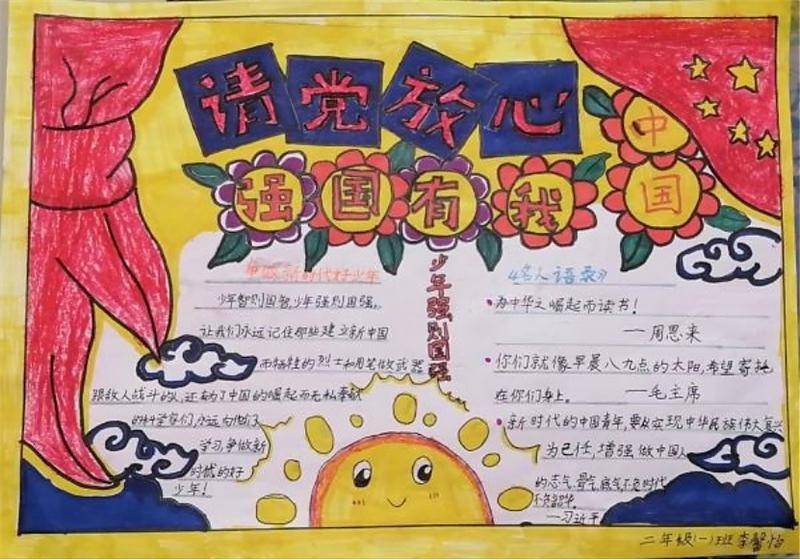 请党放心
强国有我
中国
争做新时代好少年
少年智则国智,少年强则国强。
让我们永远记住那些建立新中国
而牺牲的烈士和用笔做武器
跟敌人战斗的人,还有为了中国的崛起而无私奉献
的科学家们,永远向他们
学习,争做新
时代的好
少年!
少年强则国强
《名人语录》
为中华之崛起而读书!
——周恩来
你们就像早晨八九点的太阳,希望寄托
在你们身上。 ——毛主席
新时代的中国青年,要以实现中华民族伟大复兴
为己任,增强做中国人
的志气、骨气、底气,不负时代
不负韶华。
——习近平
二年级(一)班 李馨怡